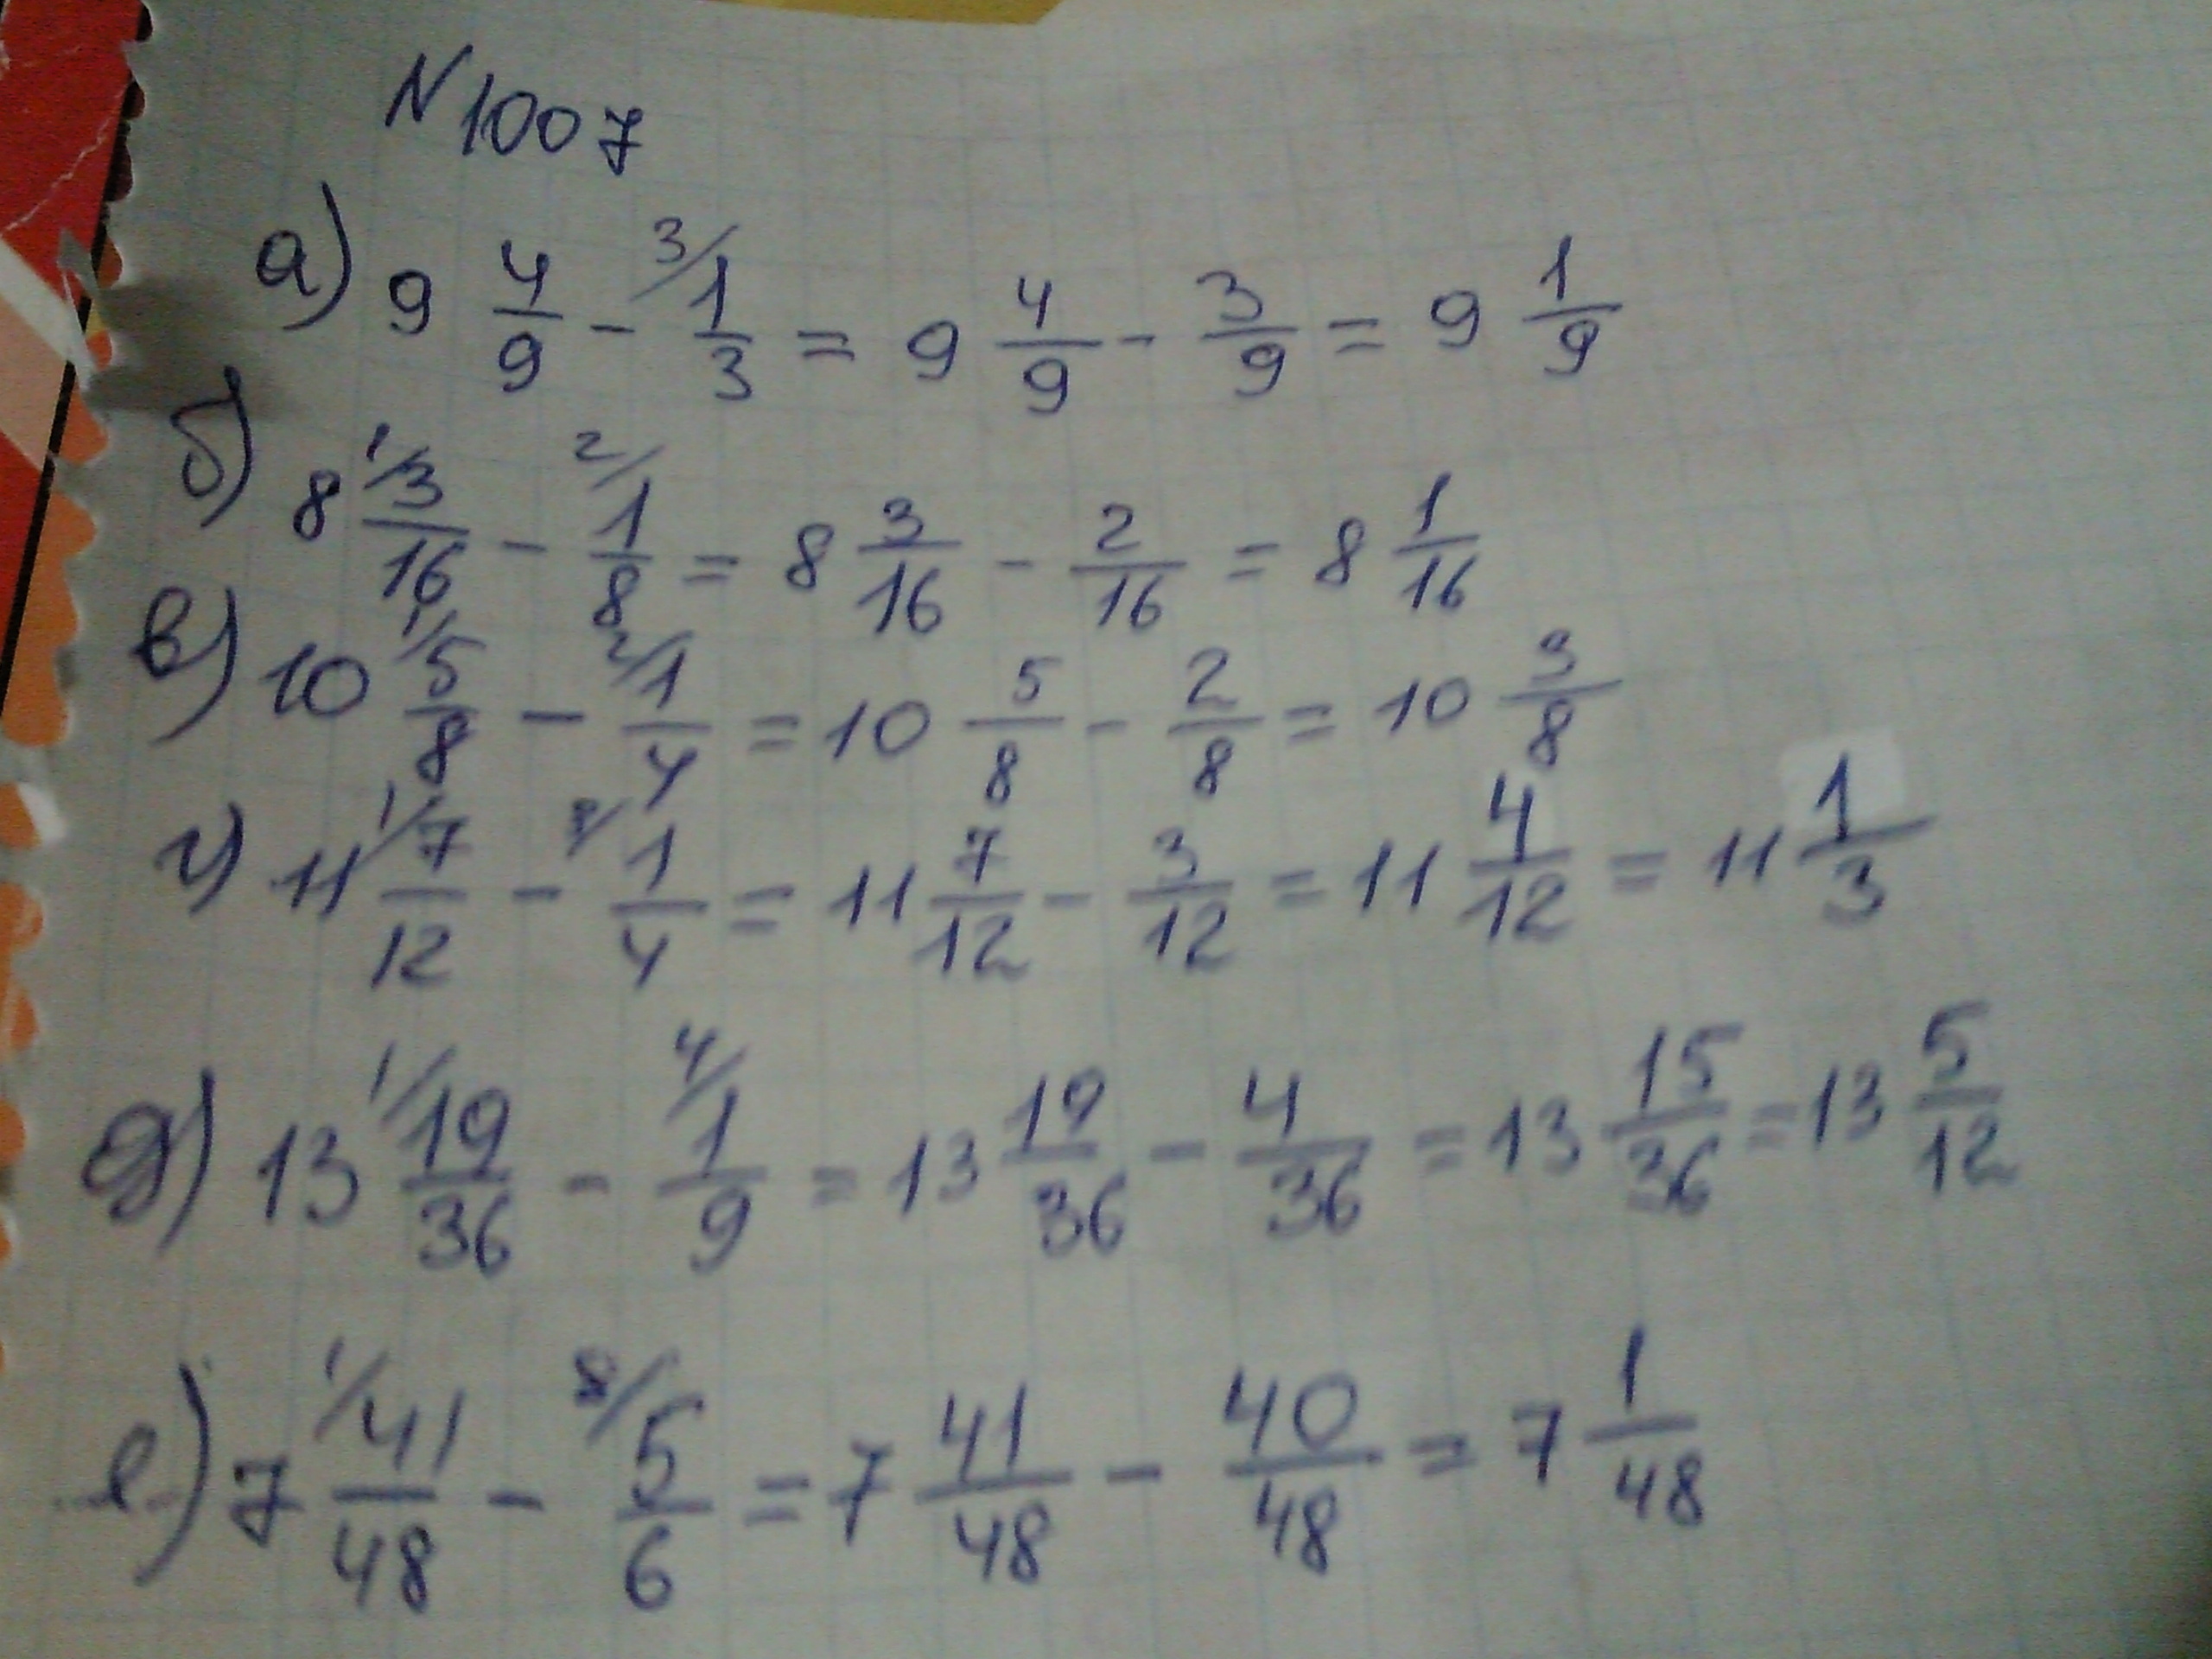 N 1007
а) 9 4/9 - 3/ 1/3 = 9 4/9 - 3/9 = 9 1/9
б) 8 1/ 3/16 - 2/ 1/8 = 8 3/16 - 2/16 = 8 1/16
в) 10 1/ 5/8 - 2/ 1/4 = 10 5/8 - 2/8 = 10 3/8
г) 11 1/ 7/12 - 3/ 1/4 = 11 7/12 - 3/12 = 11 4/12 = 11 1/3
д) 13 1/ 19/36 - 4/ 1/9 = 13 19/36 - 4/36 = 13 15/36 = 13 5/12
е) 7 1/ 41/48 - 8/ 5/6 = 7 41/48 - 40/48 = 7 1/48